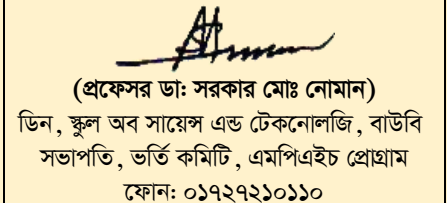 (প্রফেসর ডা: সরকার মোঃ নোমান)
ডিন, স্কুল অব সায়েন্স এন্ড টেকনোলজি, বাউবি
সভাপতি, ভর্তি কমিটি, এমপিএইচ প্রোগ্রাম
ফোন: ০১৭২৭২১০১১০